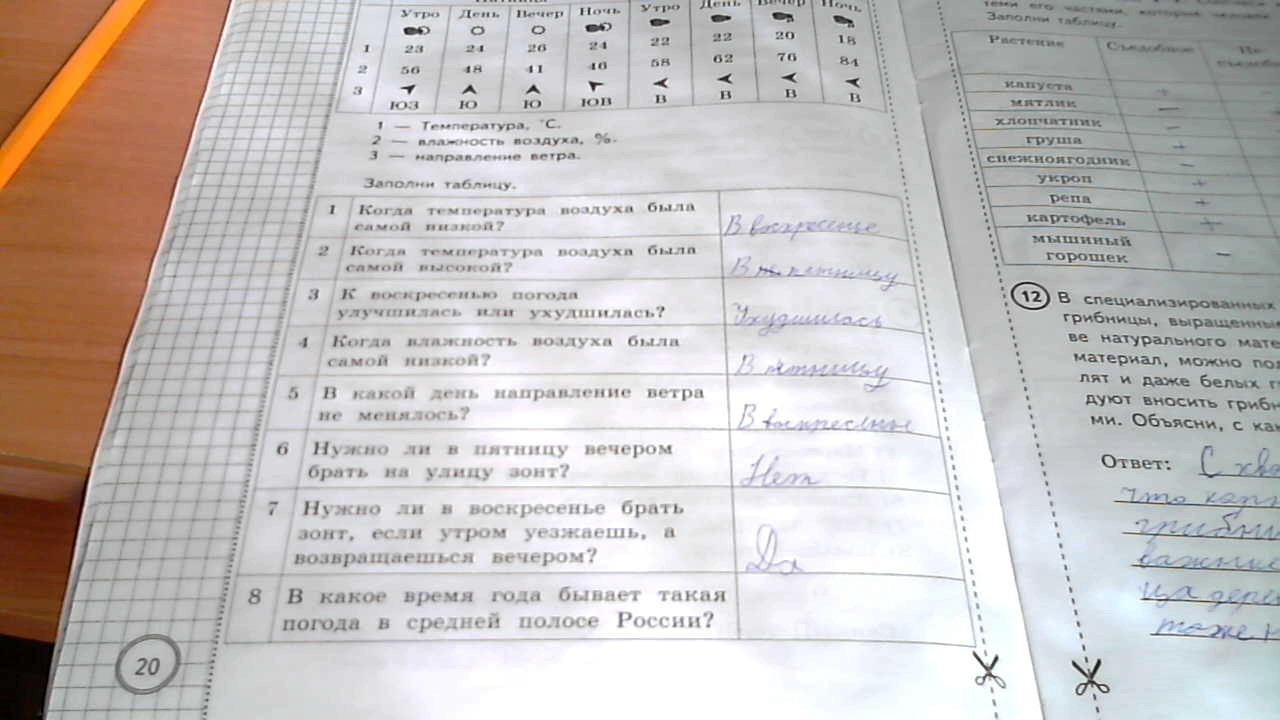 Утро День Вечер Ночь Утро День Вечер Ночь
1 23 24 26 24 22 22 20 18
2 56 48 41 46 58 62 76 84
3 ЮЗ Ю Ю ЮВ В В В В
1 — Температура, °C.
2 — влажность воздуха, %.
3 — направление ветра.
Заполни таблицу.
1 Когда температура воздуха была
самой низкой? В воскресенье
2 Когда температура воздуха была
самой высокой? В пятницу
3 К воскресенью погода
улучшилась или ухудшилась? Ухудшилась
4 Когда влажность воздуха была
самой низкой? В пятницу
5 В какой день направление ветра
не менялось? В воскресенье
6 Нужно ли в пятницу вечером
брать на улицу зонт? Нет
7 Нужно ли в воскресенье брать
зонт, если утром уезжаешь, а
возвращаешься вечером? Да
8 В какое время года бывает такая
погода в средней полосе России?
20
Заполни таблицу.
Растение Съедобное Не
капуста +
мятлик —
хлопчатник —
груша +
снежноягодник —
укроп +
репа +
картофель +
мышиный
горошек —
12 В специализированных
грибницы, выращенны
ве натурального мате
материал, можно по
лят и даже белых г
дуют вносить грибн
ми. Объясни, с ка
Ответ: С хво
что
грибни
важные
дере
тоже